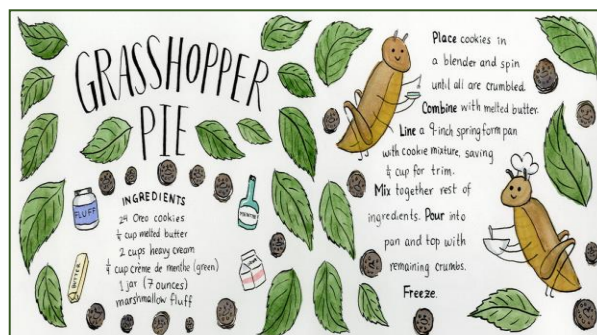 GRASSHOPPER
PIE
INGREDIENTS
24 Oreo cookies
¼ cup melted butter
2 cups heavy cream
¼ cup crème de menthe (green)
1 jar (7 ounces)
marshmallow fluff
FLUFF
BUTTER
MENTHE
Place cookies in
a blender and spin
until all are crumbled.
Combine with melted butter.
Line a 9-inch springform pan
with cookie mixture, saving
¼ cup for trim.
Mix together rest of
ingredients. Pour into
pan and top with
remaining crumbs.
Freeze.